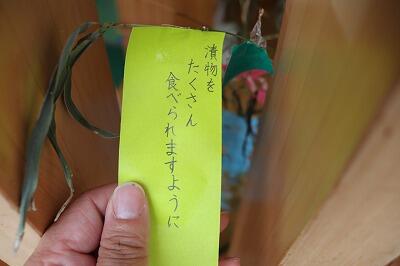 漬物を
たくさん
食べられますように